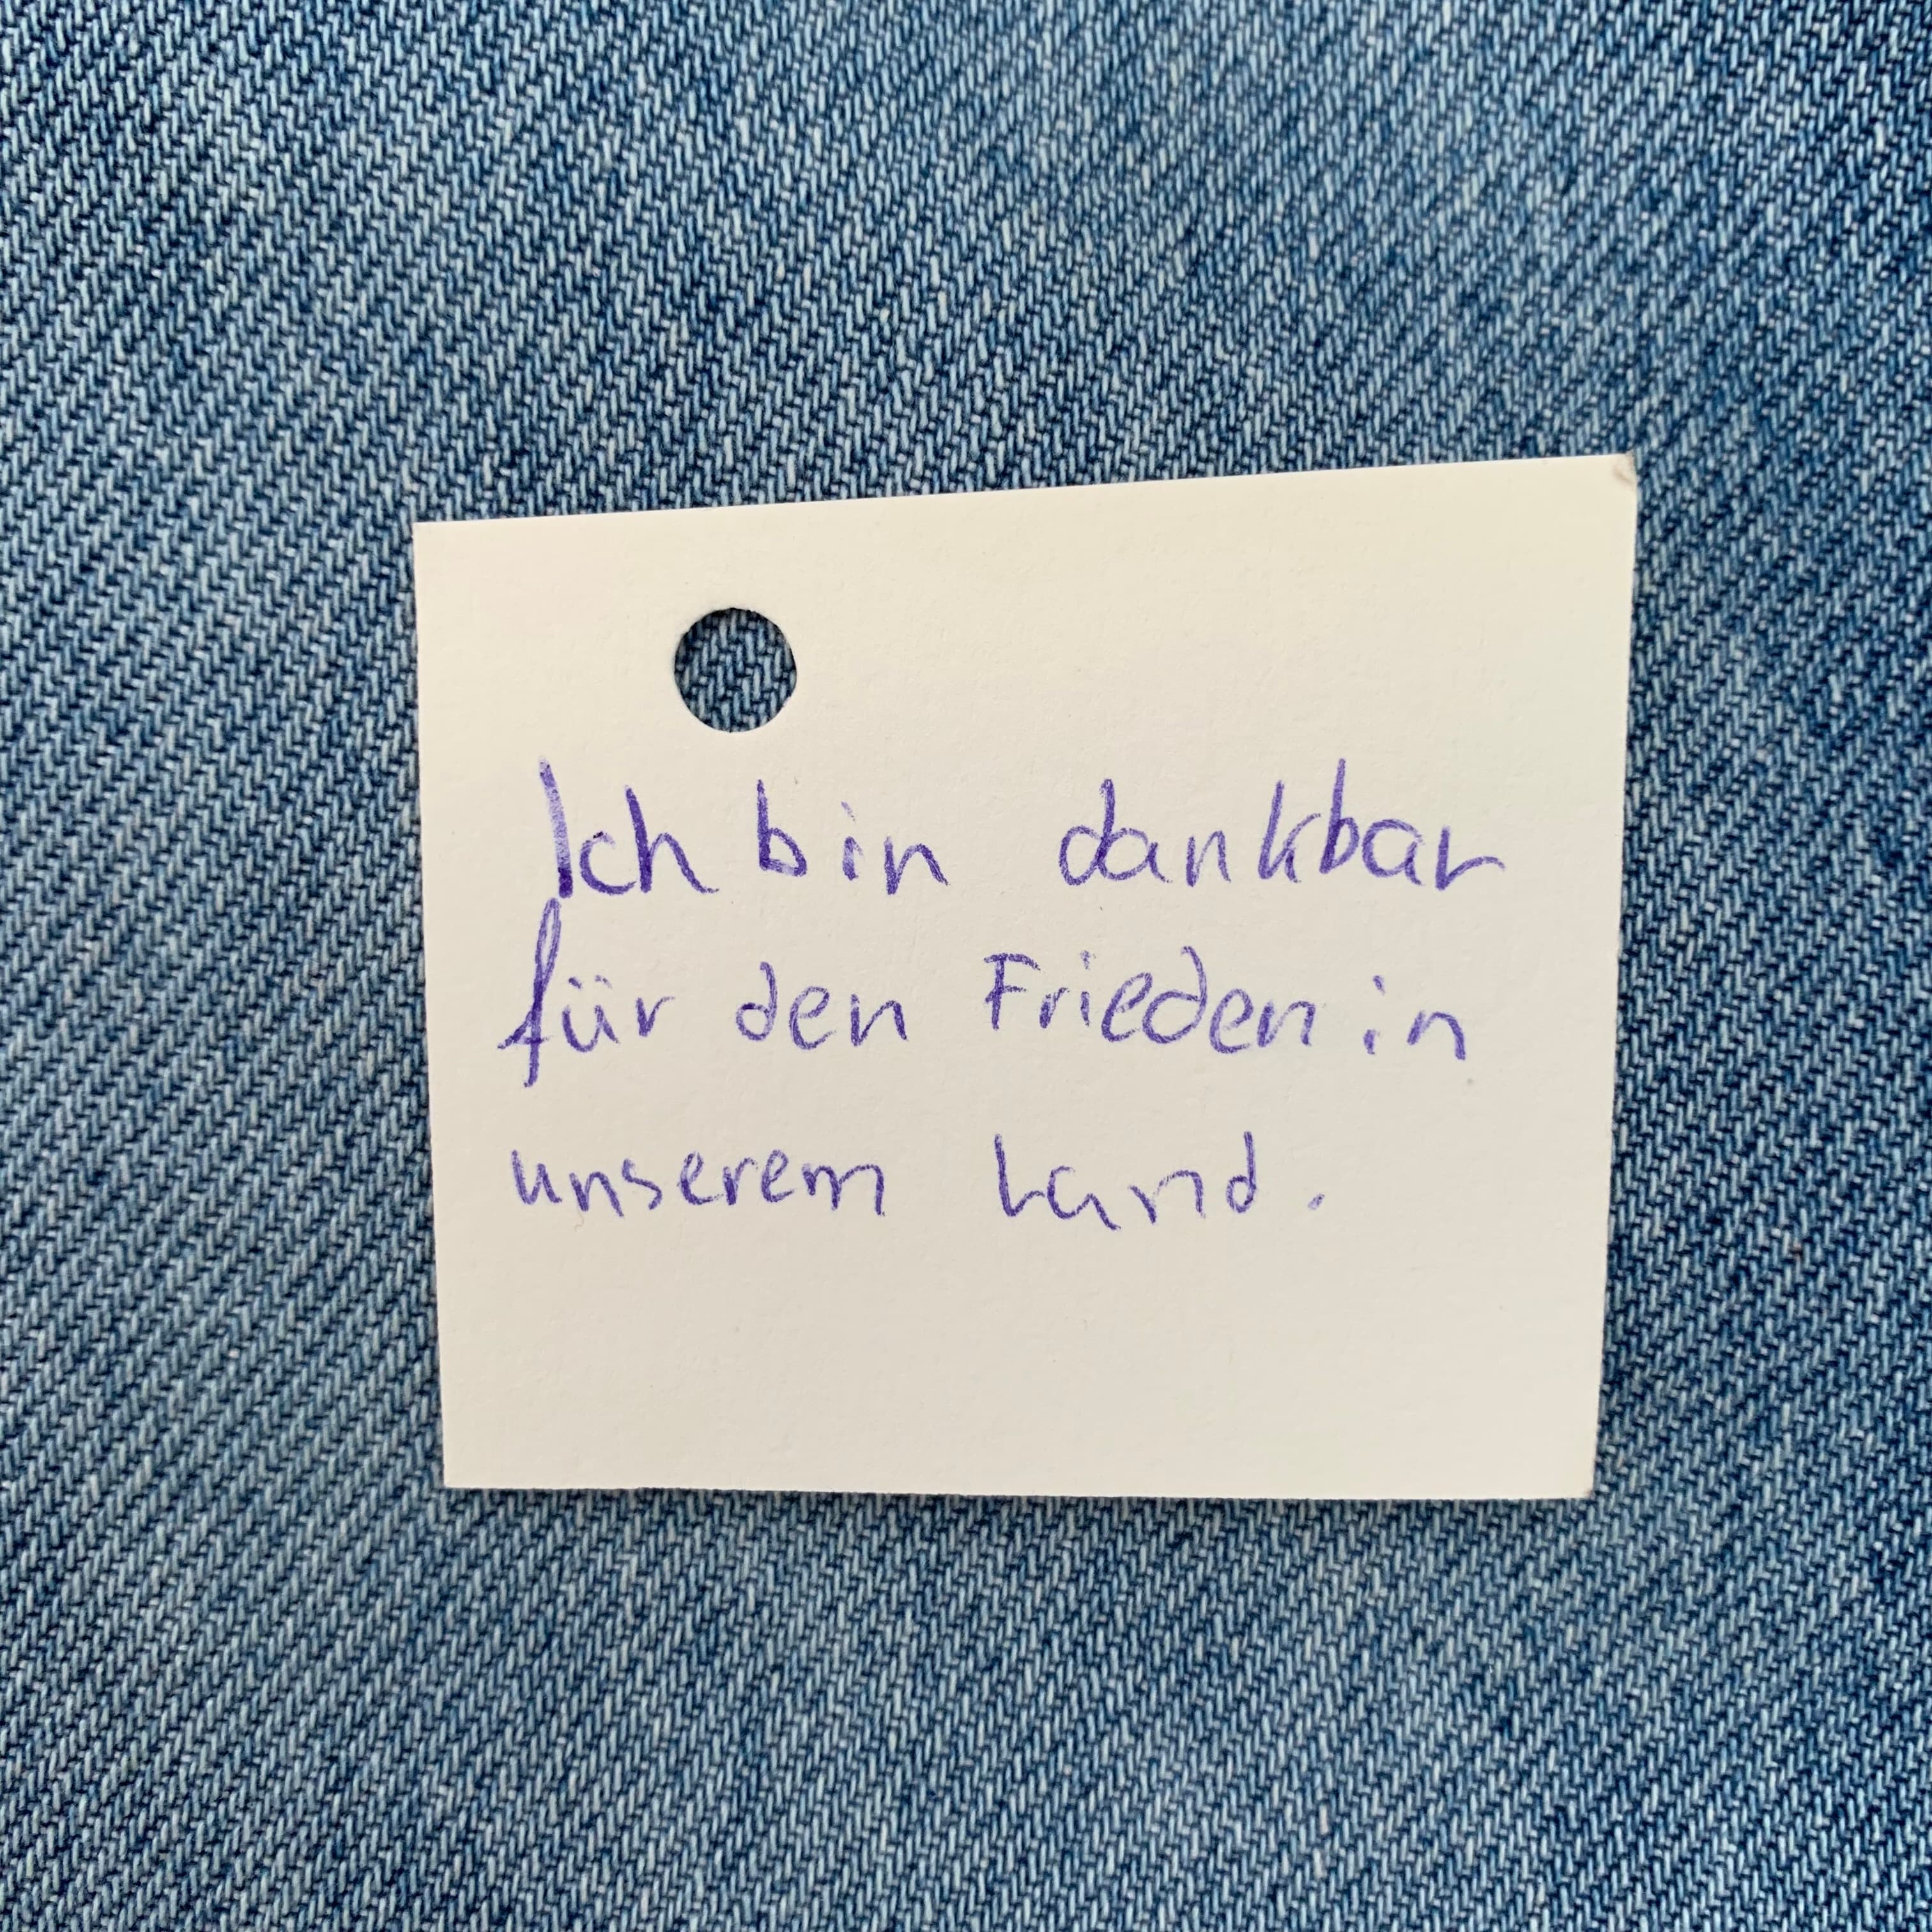 Ich bin dankbar
für den Frieden in
unserem Land.